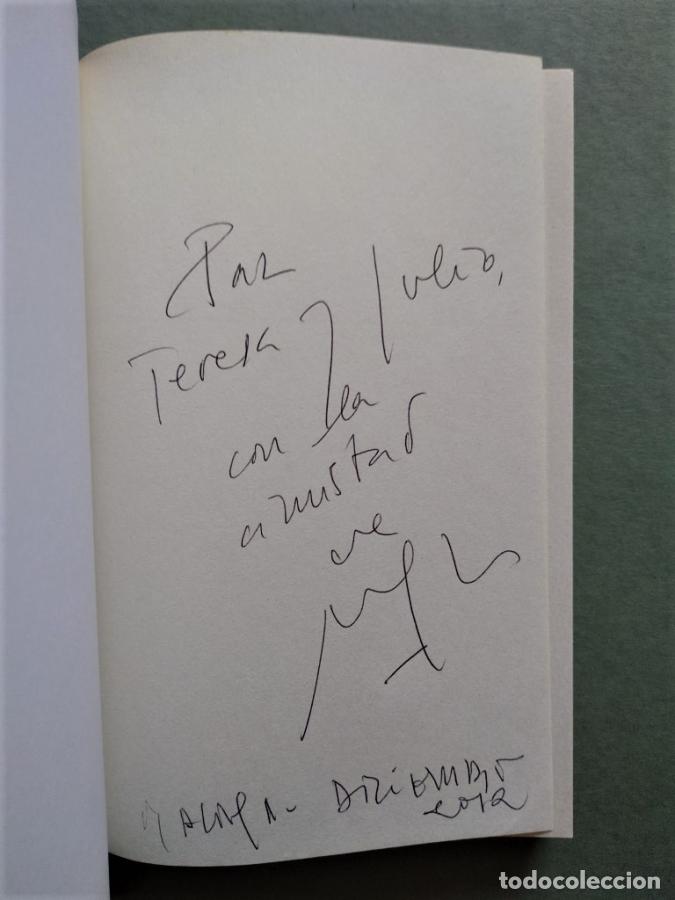 Para
Teresa y Julio,
con la
amistad
de
Malaga - Diciembre
2012
todocoleccion